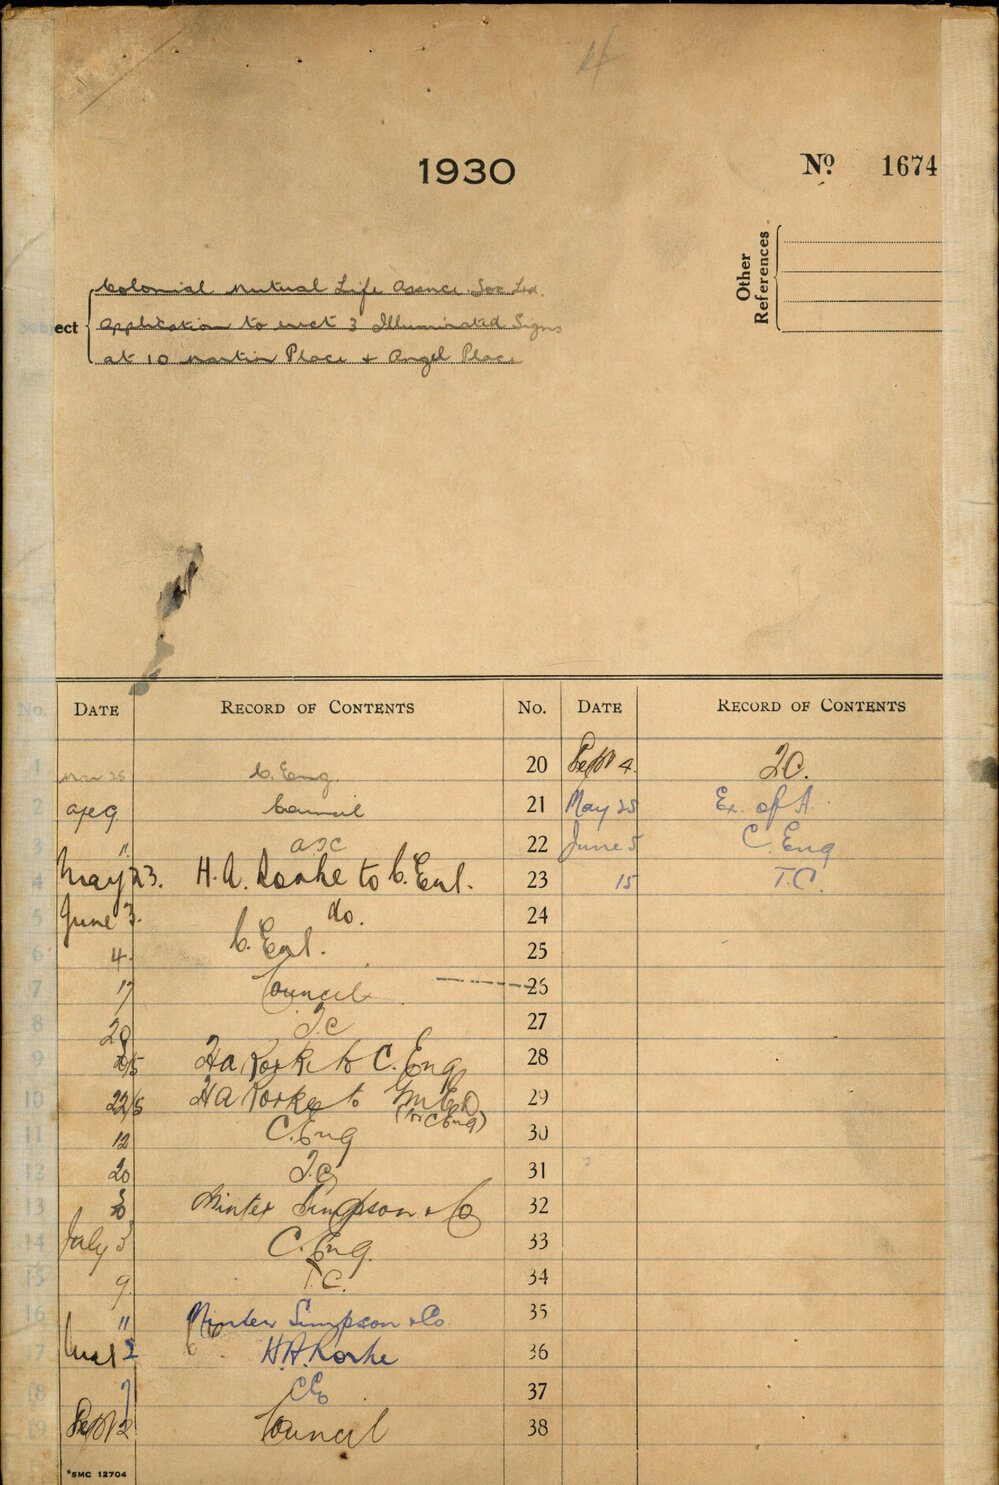 4
1930
No. 1674
Other References
Subject
Colonial Mutual Life Assnce. Soc Ltd.
Application to erect 3 Illuminated Signs
at 10 Martin Place & Angel Place
No. DATE RECORD OF CONTENTS No. DATE RECORD OF CONTENTS
1 Mar 25 C. Eng. 20 Septr 4. T.C.
2 Ap 9 Council 21 May 25 Ex. of A.
3 " asc 22 June 5 C. Eng
4 May 23. H. A. Rorke to C. Enl. 23 15 T.C.
5 June 3. do. 24
6 4. C. Enl. 25
7 17 Council 26
8 20 T.C 27
9 HA Rorke to C. Eng 28
10 22/5 HA Rorke to (for C Eng) 29
11 12 C. Eng 30
12 20 T.C 31
13 Minter Simpson & Co 32
14 July 3 C. Eng. 33
15 9. T.C. 34
16 11 Minter Simpson & Co. 35
17 2 H.A. Rorke 36
18 7 37
19 Septr 2 Council 38
*SMC 12704